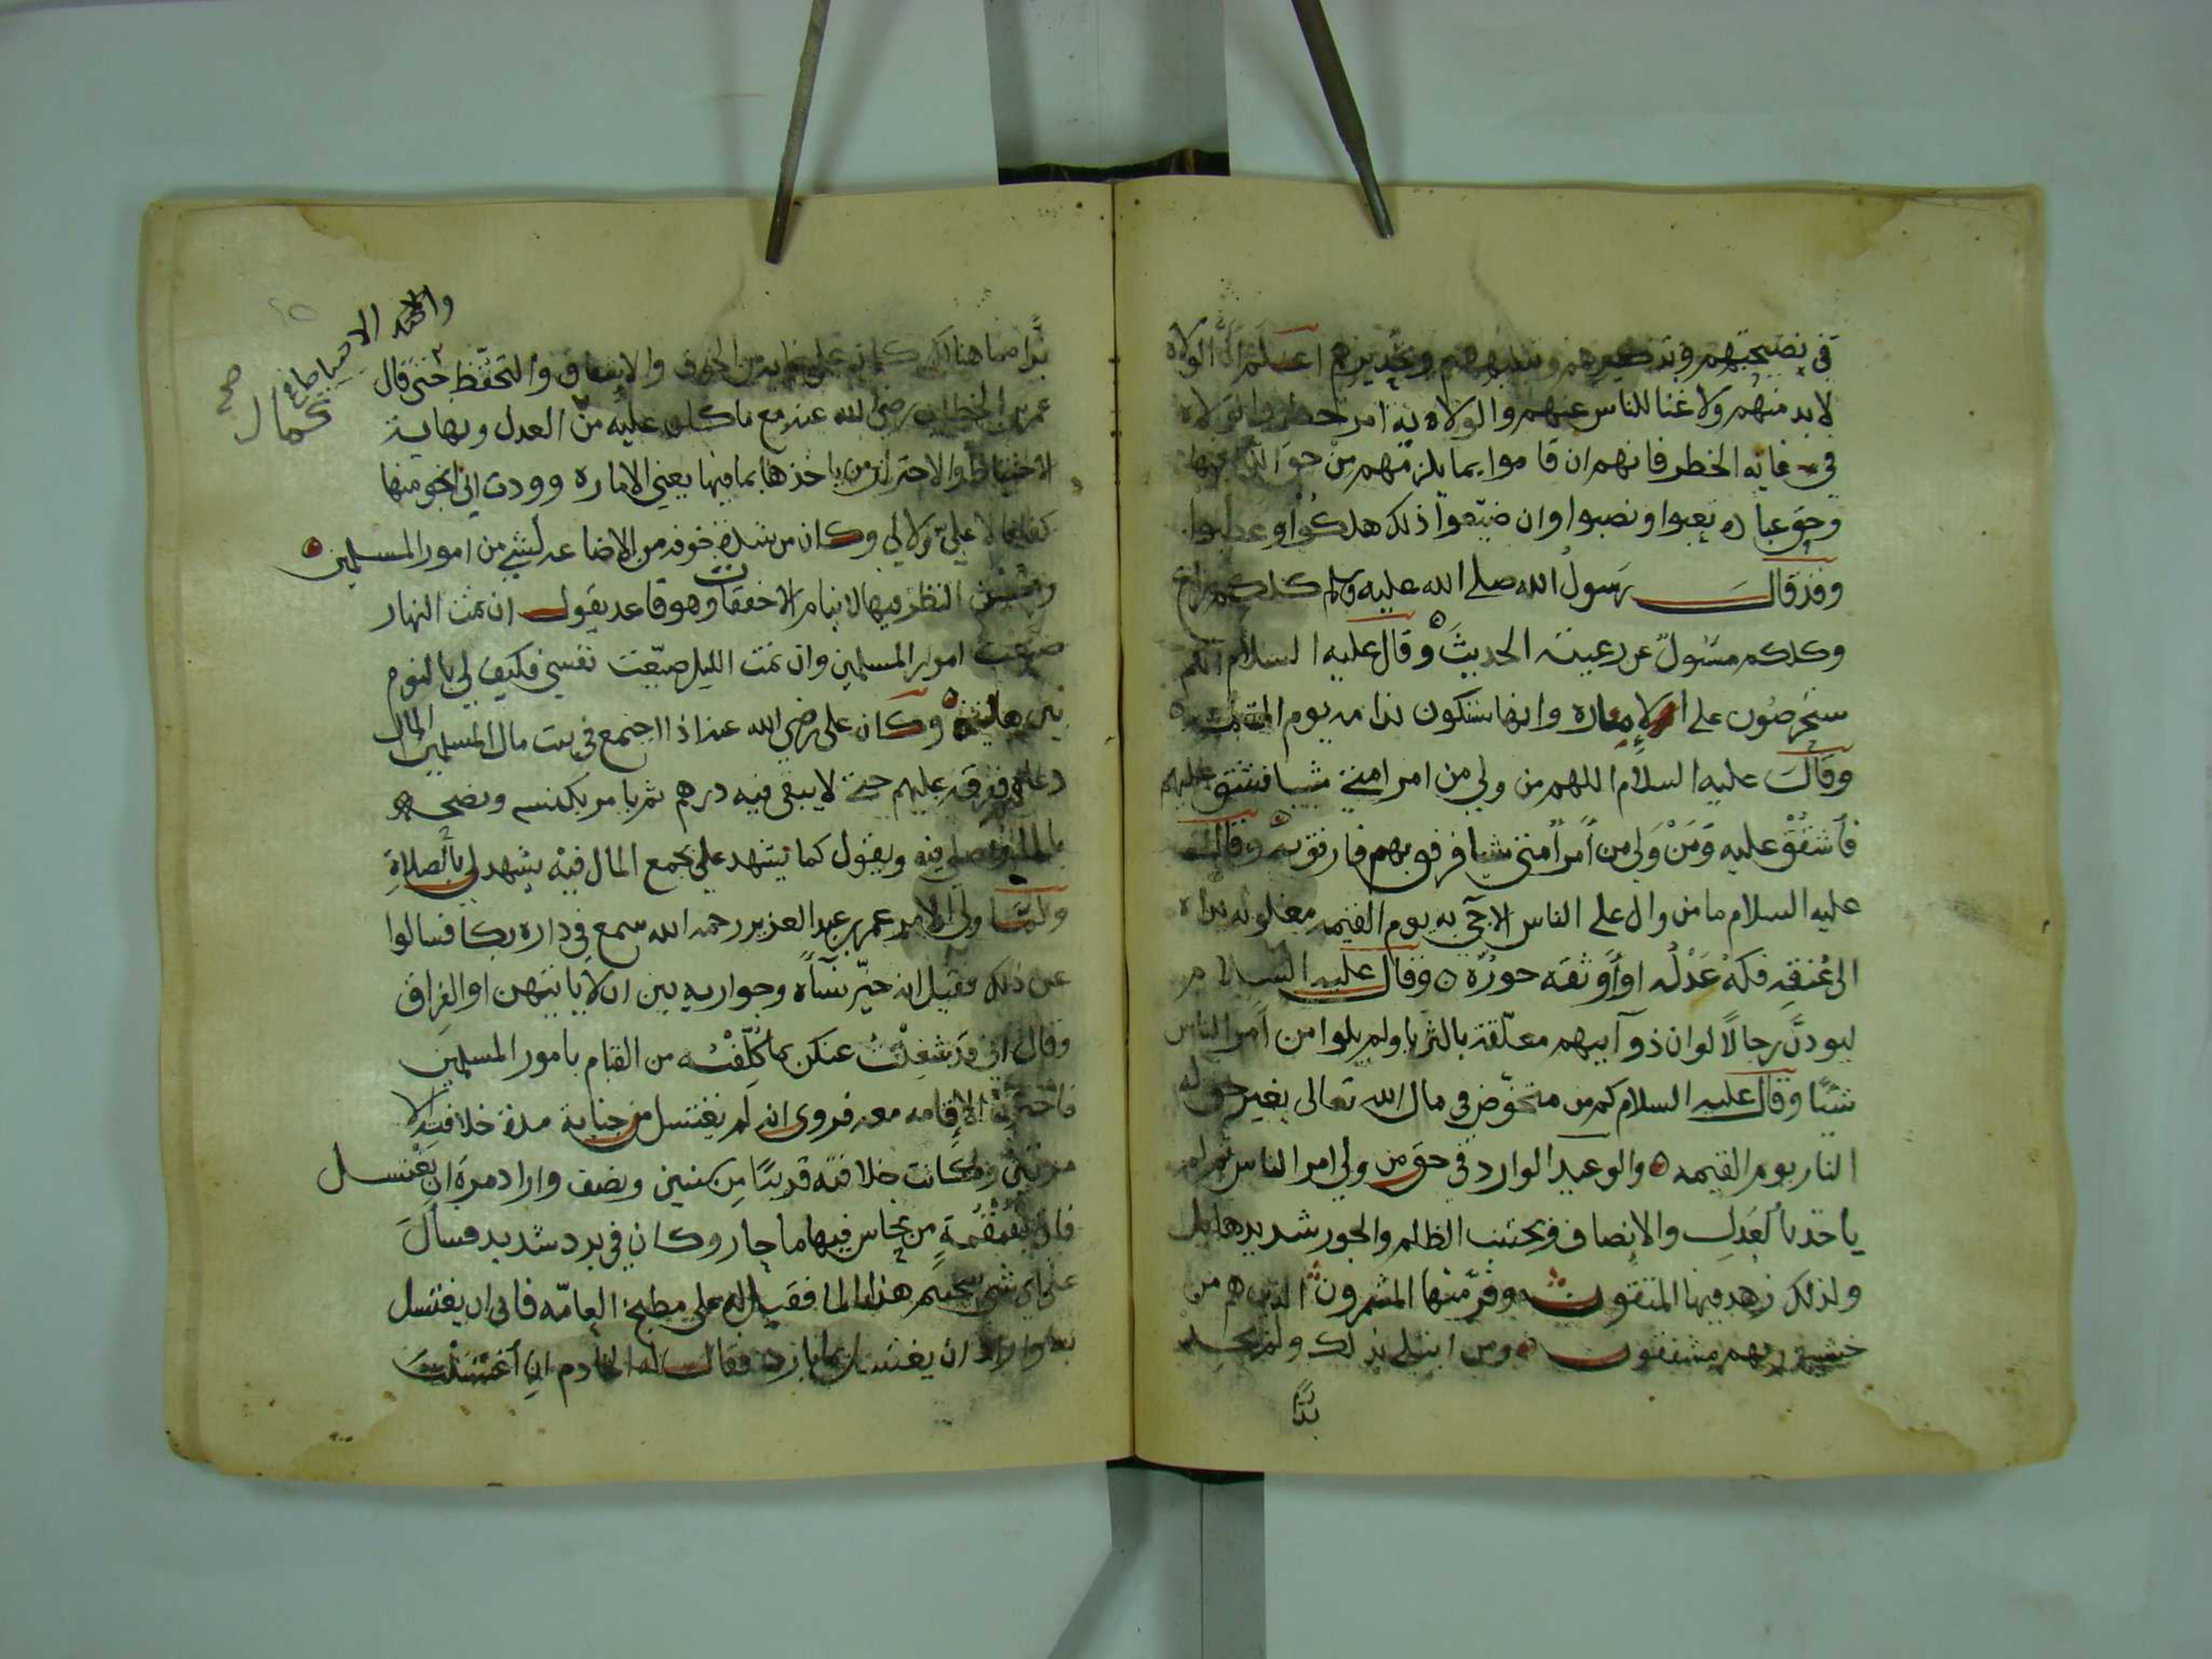 في نصيحتهم وتذكيرهم وتنبيههم وتحذيرهم اعلم ان الولاة
لابد منهم ولا غنا للناس عنهم والولاه في امر خطر والولاه
في غايه الخطر فانهم ان قاموا بما يلزمهم من حق الله فيها
وحق عباده تعبوا ونصبوا وان ضيّعوا ذلك هلكوا وعطبوا
وقد قال رسول الله صلى الله عليه وسلم كلكم راع
وكلكم مسئول عن رعيته الحديث وقال عليه السلام انكم
ستحرصون على الإماره وانها ستكون ندامه يوم القيمه
وقال عليه السلام اللهم من ولي من امر امتي شيا فشق عليهم
فأشقق عليه ومن ولي من أمر أمتي شيا فرفق بهم فارفق به وقال
عليه السلام ما من وال على الناس الا جيء به يوم القيمه مغلوله يداه
الى عنقه فكه عدله او أوثقه جوره وقال عليه السلام
ليودنّ رجالا لو ان ذوآبيهم معلّقة بالثريا ولم يلوا من أمر الناس
شيئا وقال عليه السلام كم من متخوّض في مال الله تعالى بغير حق له
النار يوم القيمه والوعيد الوارد في حق من ولي امر الناس ثم لم
ياخذ بالعدل والانصاف ويجتنب الظلم والجور شديد هايل
ولذلك زهد فيها المتقون وفرّ منها المشمرون الذين هم من
خشية ربهم مشفقون ومن ابتلي بذلك ولم يجد
بدًّا
بدًّا منها هنالك كان على غاية من الخوف والإشفاق والتحفّظ حتى قال
والجد الاحتياط في
كمال
صح
عمر بن الخطاب رضي الله عنه مع ما كان عليه من العدل ونهاية
الاحتياط والاحتراز من ياخذها بما فيها يعني الاماره ووددت اني انجو منها
كفافا لا عليّ ولا لي وكان من شدة خوفه من الاضاعه لشيء من امور المسلمين
وحسن النظر فيها لا ينام الا خفقات وهو قاعد يقول ان نمت النهار
ضيعت امور المسلمين وان نمت الليل ضيّعت نفسي فكيف لي بالنوم
بين هاتين وكان على رضي الله عنه اذا اجتمع في بيت مال المسلمين المال
دعاهم وفرقه عليهم حتى لا يبقى فيه درهم ثم يامر بكنسه ونضحه
بالماء ويصلي فيه ويقول كما يشهد علي بجمع المال فيه يشهد لي بالصلاة
ولما ولي الامر عمر بن عبد العزيز رحمه الله سمع في داره بكا فسالوا
عن ذلك فقيل انه خيّر نسآه وجواريه بين ان لا ياتيهن او الفراق
وقال اني قد شغلت عنكن بما كلّفته من القيام بامور المسلمين
فاخترن الإقامه معه فروى انه لم يغتسل من جنابة مدة خلافته الا
مرتين وكانت خلافته قريبًا من سنتين ونصف واراد مرة ان يغتسل
فاتي بقمقمة من نحاس فيها ما حار وكان في برد شديد فسأل
على اي شي سخنتم هذا الما فقيل له على مطبخ العامّه فابى ان يغتسل
به واراد ان يغتسل بما بارد فقال له الخادم ان أغتسلت